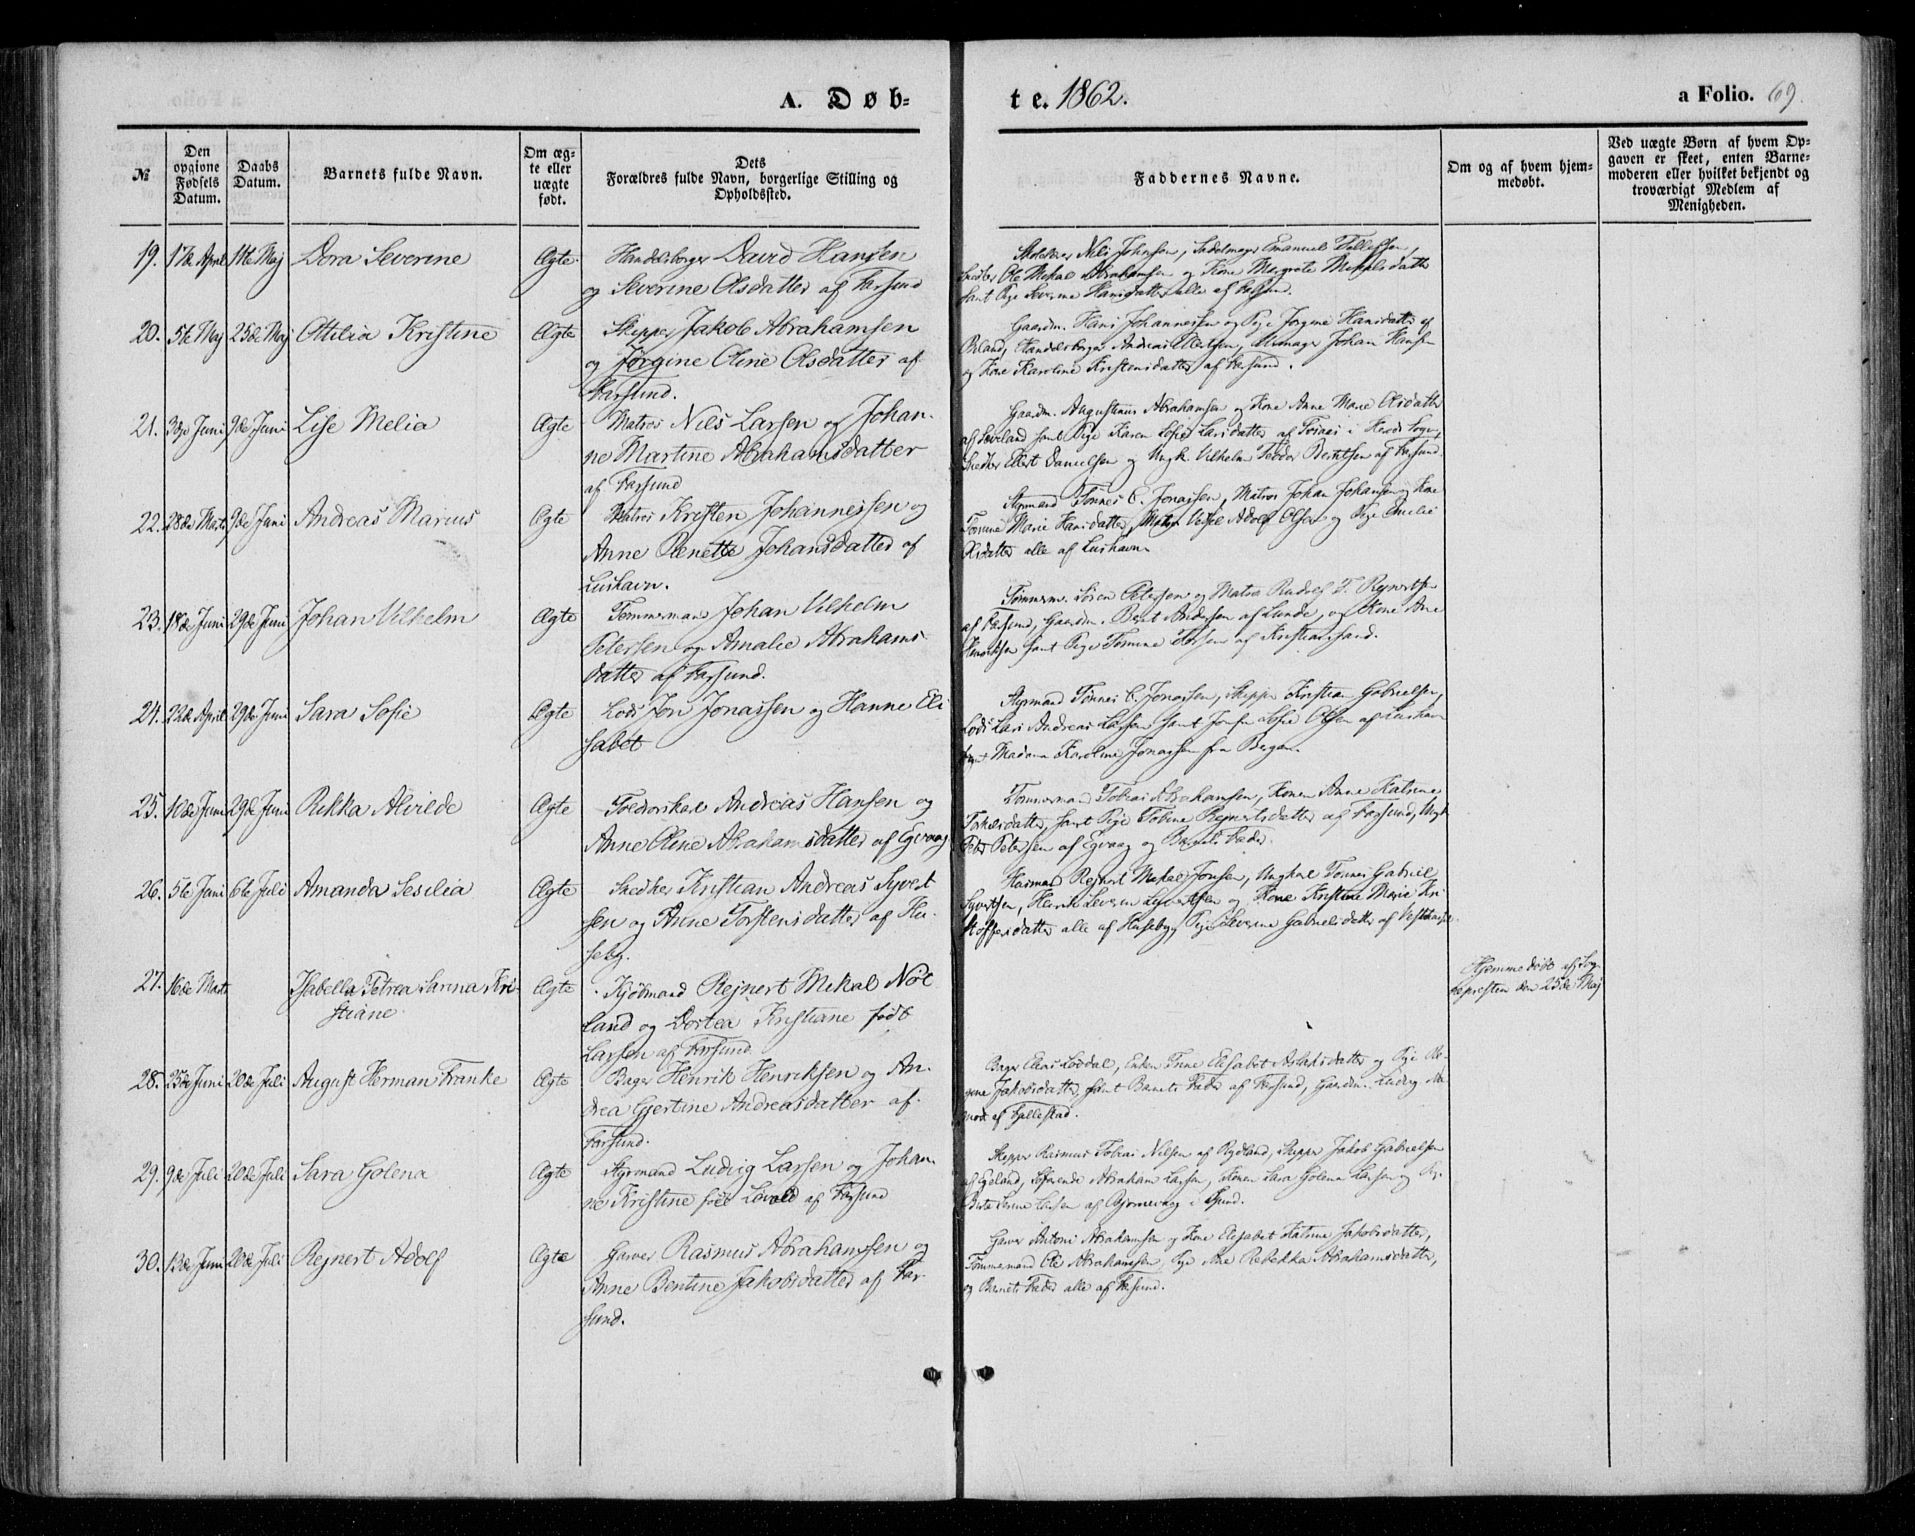 A. Døb-
te. 1862.
a Folio. 69.
№
Den opgivne Fødsels Datum.
Daabs Datum.
Barnets fulde Navn.
Om ægte eller uægte født.
Dets Forældres fulde Navn, borgerlige Stilling og Opholdssted.
Faddernes Navne.
Om og af hvem hjemmedøbt.
Ved uægte Børn af hvem Opgaven er skeet, enten Barnemoderen eller hvilket bekjendt og troværdigt Medlem af Menigheden.
19. 17de April 11te Maj Dora Severine Ægte Handelsborger David Hansen
og Severine Olsdatter af Farsund
Nils Johnsen, Sadelmager Emanuel Tollefsen,
Snedker Ole Mekal Abrahamsen og Kone Margrete
samt Pige Severine Hansdatter alle af Farsund.
20. 5te Maj 25de Maj Otilia Kristine Ægte Skipper Jakob Abrahamsen
og Jørgine Oline Olsdatter af
Farsund.
Gaardm. Hans Johannessen og Pige Jørgine Hansdatter af
Handelsborger Andreas Johan
og Kone Karoline Kristensdatter af Farsund.
21. 3die Juni 9de Juni Lise Melia Ægte Matros Nils Larsen og Johan-
ne Martine Abrahamsdatter
af Farsund
Gaardm. Augustinus Abrahamsen og Kone Anne Marie Olsdatter
samt Pige Karen Sofie Larsdatter af i Herads Sogn,
Snedker Ellert Danielsen og Ungk. Vilhelm Teodor Berntsen af Farsund.
22. 28de Marts 9de Juni Andreas Marius Ægte Matros Kristen Johannessen og
Anne Renette Johansdatter af
Lushavn.
Styrmand Tønnes C. Jonassen, Matros Johan Johansen og Kone
Tomine Marie Hansdatter, Adolf Olsen og Pige Emilie
Olsdatter alle af Lushavn.
23. 18de Juni 29de Juni Johan Vilhelm Ægte Tømmermand Johan Vilhelm
Petersen og Amalie Abrahams
datter af Farsund.
Tømmerm. Søren Petersen og Matros Rudolf T. Rejnertsen
af Farsund, Gaardm. Bernt Andersen af Lunde, og Kone Ane
Henriksen samt Pige Tomine af Kristianssand.
24. 22de April 29de Juni Sara Sofie Ægte Lods Jon Jonassen og Hanne Eli
sabet
Styrmand Tønnes C. Jonassen, Skipper Kristian Gabrielsen,
Lods Lars Andreas Larsen samt Sofie Olsen af Lushavn
samt Madam Karoline Jonassen fra Bergen.
25. 10de Juni 29de Juni Rikka Alvilde Ægte Andreas Hansen og
Anne Oline Abrahamsdatter af Egvaag
Tømmermand Tobias Abrahamsen, Konen Anne Katrine
samt Pige Tobine Rejnertsdatter af Farsund, Ungk.
Peder Petersen af Egvaag og Barnets Fader.
26. 5te Juni 6te Juli Amanda Sesilia Ægte Snedker Kristian Andreas Syvert
sen og Anne Torstensdatter af Hu-
seby.
Husmand Rejnert Mekal Jonsen, Ungkarl Tønnes Gabriel
Syvertsen, Henrik Severin Syvertsen og Kone Kristine Marie Kri
stoffersdatter alle af Huseby, Pige Severine Gabrielsdatter af
27. 16de Marts Isabella Petrea Sarina Kri-
stiane Ægte Kjøbmand Rejnert Mekal Nøt
land og Dortea Kristiane født
Larsen af Farsund.
Hjemmedøbt af Sog-
nepresten den 25de Maj
28. 25de Juni 20de Juli August Herman Franke Ægte Bager Henrik Henriksen og An-
drea Gjertine Andreasdatter af
Farsund.
Bager Elias Løvdal, Enken Trine Elisabet Aslaksdatter og Pige Re-
gine Jakobsdatter, samt Barnets Fader af Farsund, Gaardm. Ludvig
29. 9de Juli 20de Juli Sara Golena Ægte Styrmand Ludvig Larsen og Johan-
ne Kristine født af Farsund
Skipper Rasmus Tobias Nilsen af Rydland, Skipper Jakob Gabrielsen
af Eyeland, Søfarende Abraham Larsen, Konen Sara Golena Larsen og
Berte Larsen af
30. 13de Juni 20de Juli Rejnert Adolf Ægte Garver Rasmus Abrahamsen og
Anne Bentine Jakobsdatter af Far
sund.
Garver Antoni Abrahamsen og Kone Elisabet Katrine Jakobsdatter,
Tømmermand Ole Abrahamsen, Pige Ane Rebekka Abrahamsdatter,
og Barnets Fader alle af Farsund.